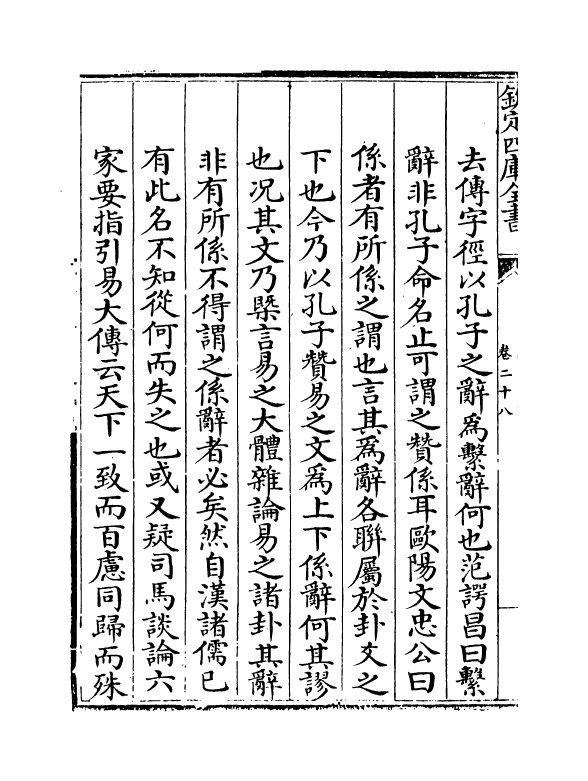 欽定四庫全書
卷二十八
去傳字徑以孔子之辭為繫辭何也范諤昌曰繫
辭非孔子命名止可謂之贊係耳歐陽文忠公曰
係者有所係之謂也言其為辭各聯屬於卦爻之
下也今乃以孔子贊易之文為上下係辭何其謬
也况其文乃槩言易之大體雜論易之諸卦其辭
非有所係不得謂之係辭者必矣然自漢諸儒已
有此名不知從何而失之也或又疑司馬談論六
家要指引易大傳云天下一致而百慮同歸而殊